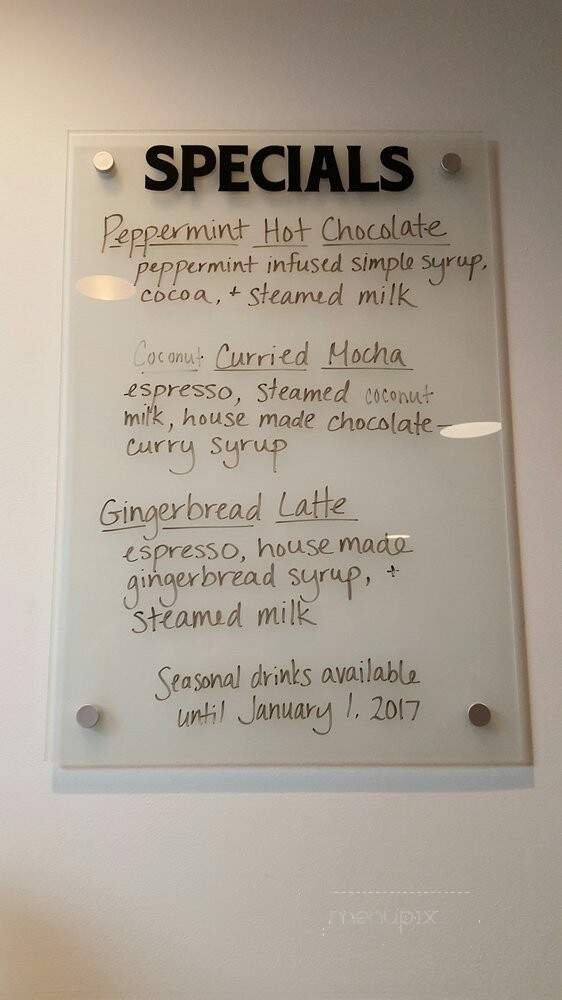 SPECIALS
Peppermint Hot Chocolate
peppermint infused simple syrup,
cocoa, + steamed milk
Coconut Curried Mocha
espresso, steamed coconut
milk, house made chocolate-
curry syrup
Gingerbread Latte
espresso, house made
gingerbread syrup, +
steamed milk
Seasonal drinks available
until January 1, 2017
menupix